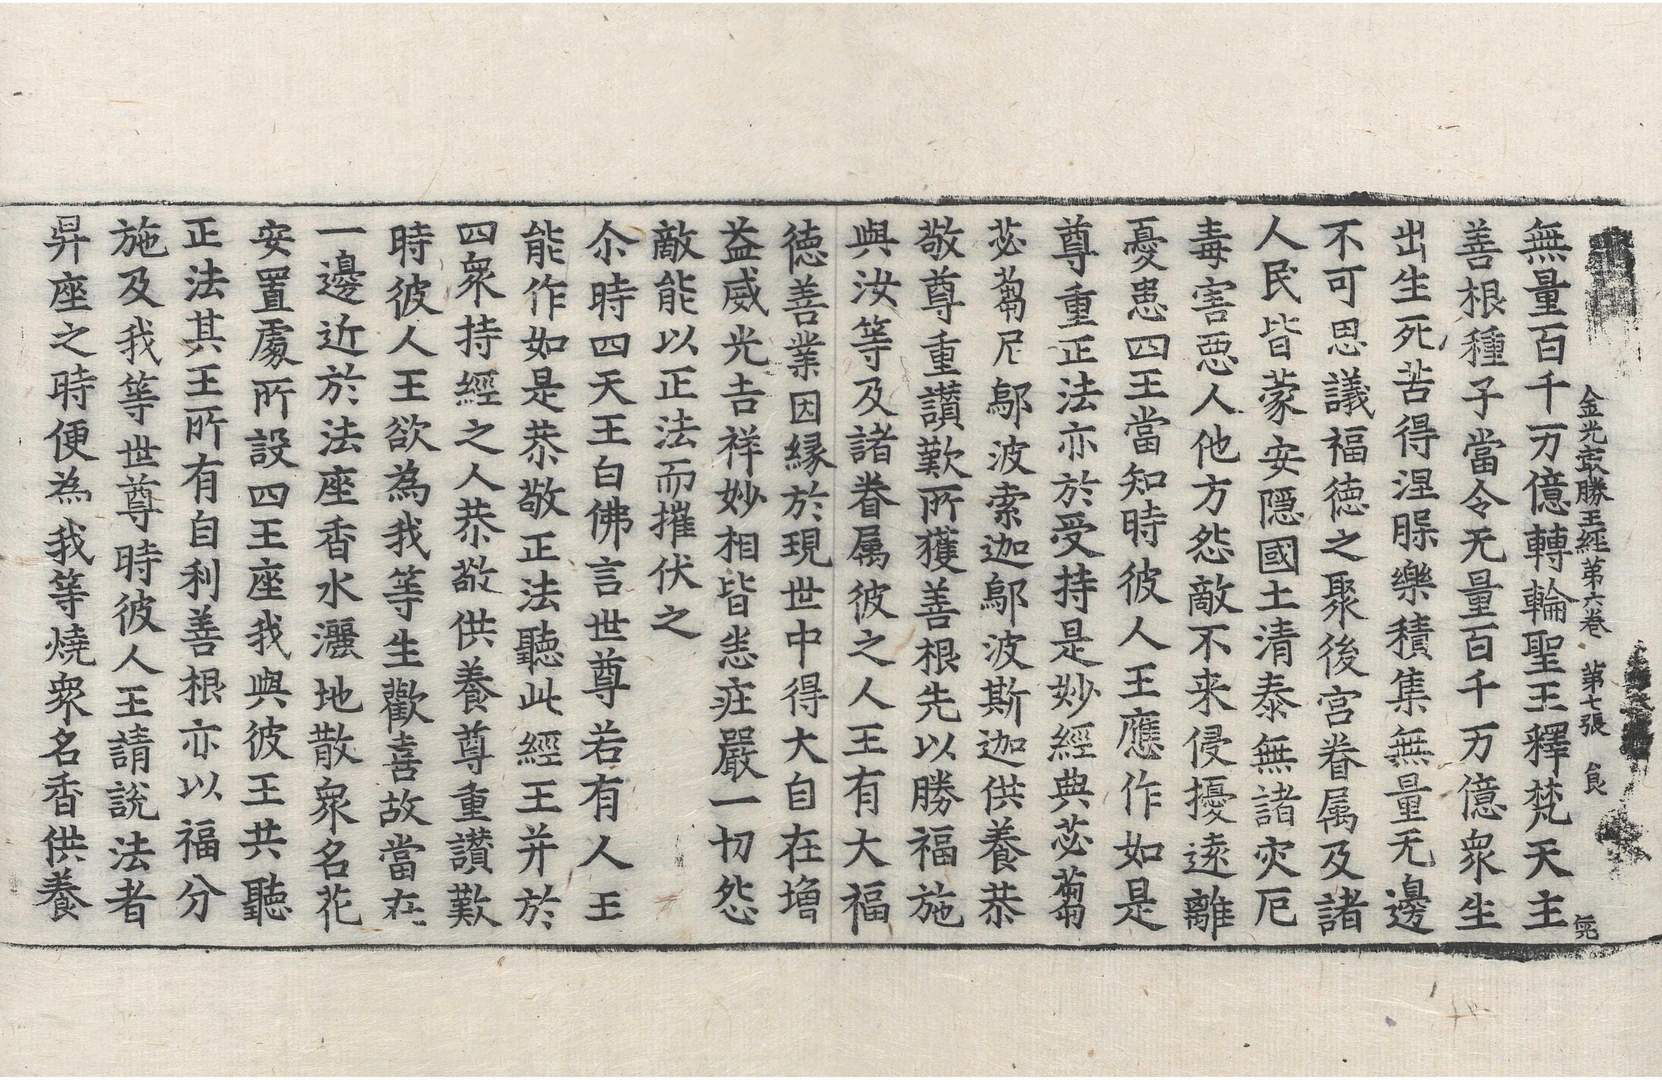 金光最勝王經第六卷　第七張　良
無量百千万億轉輪聖王釋梵天主
善根種子當令无量百千万億衆生
出生死苦得涅槃樂積集無量无邊
不可思議福徳之聚後宮眷属及諸
人民皆蒙安隱國土清泰無諸灾厄
毒害惡人他方怨敵不来侵擾遠離
憂患四王當知時彼人王應作如是
尊重正法亦於受持是妙經典苾蒭
苾蒭尼鄔波索迦鄔波斯迦供養恭
敬尊重讃歎所獲善根先以勝福施
與汝等及諸眷属彼之人王有大福
徳善業因縁於現世中得大自在増
益威光吉祥妙相皆悉庄嚴一切怨
敵能以正法而摧伏之
尒時四天王白佛言世尊若有人王
能作如是恭敬正法聽此經王并於
四衆持經之人恭敬供養尊重讃歎
時彼人王欲為我等生歡喜故當在
一邊近於法座香水灑地散衆名花
安置處所設四王座我與彼王共聽
正法其王所有自利善根亦以福分
施及我等世尊時彼人王請説法者
昇座之時便為我等燒衆名香供養